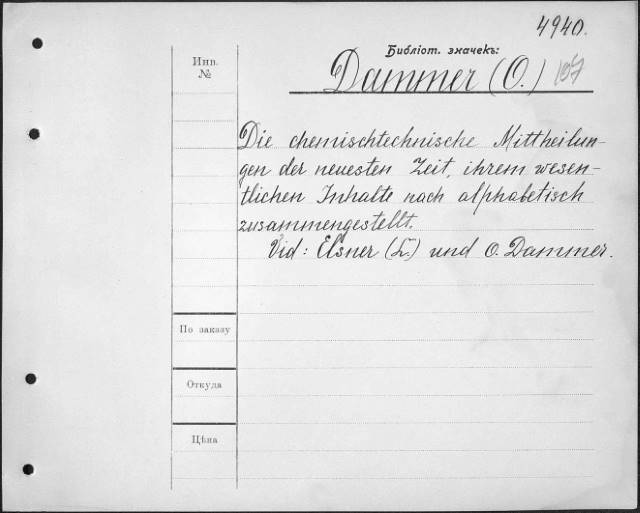 4940.
Библіот. значекъ:
Инв.
№
Dammer (O.) 157
Die chemischtechnische Mittheilun-
gen der neuesten Zeit, ihrem wesen-
tlichen Inhalte nach alphabetisch
zusammengestellt.
Vid: Elsner (L.) und O. Dammer.
По заказу
Откуда
Цѣна